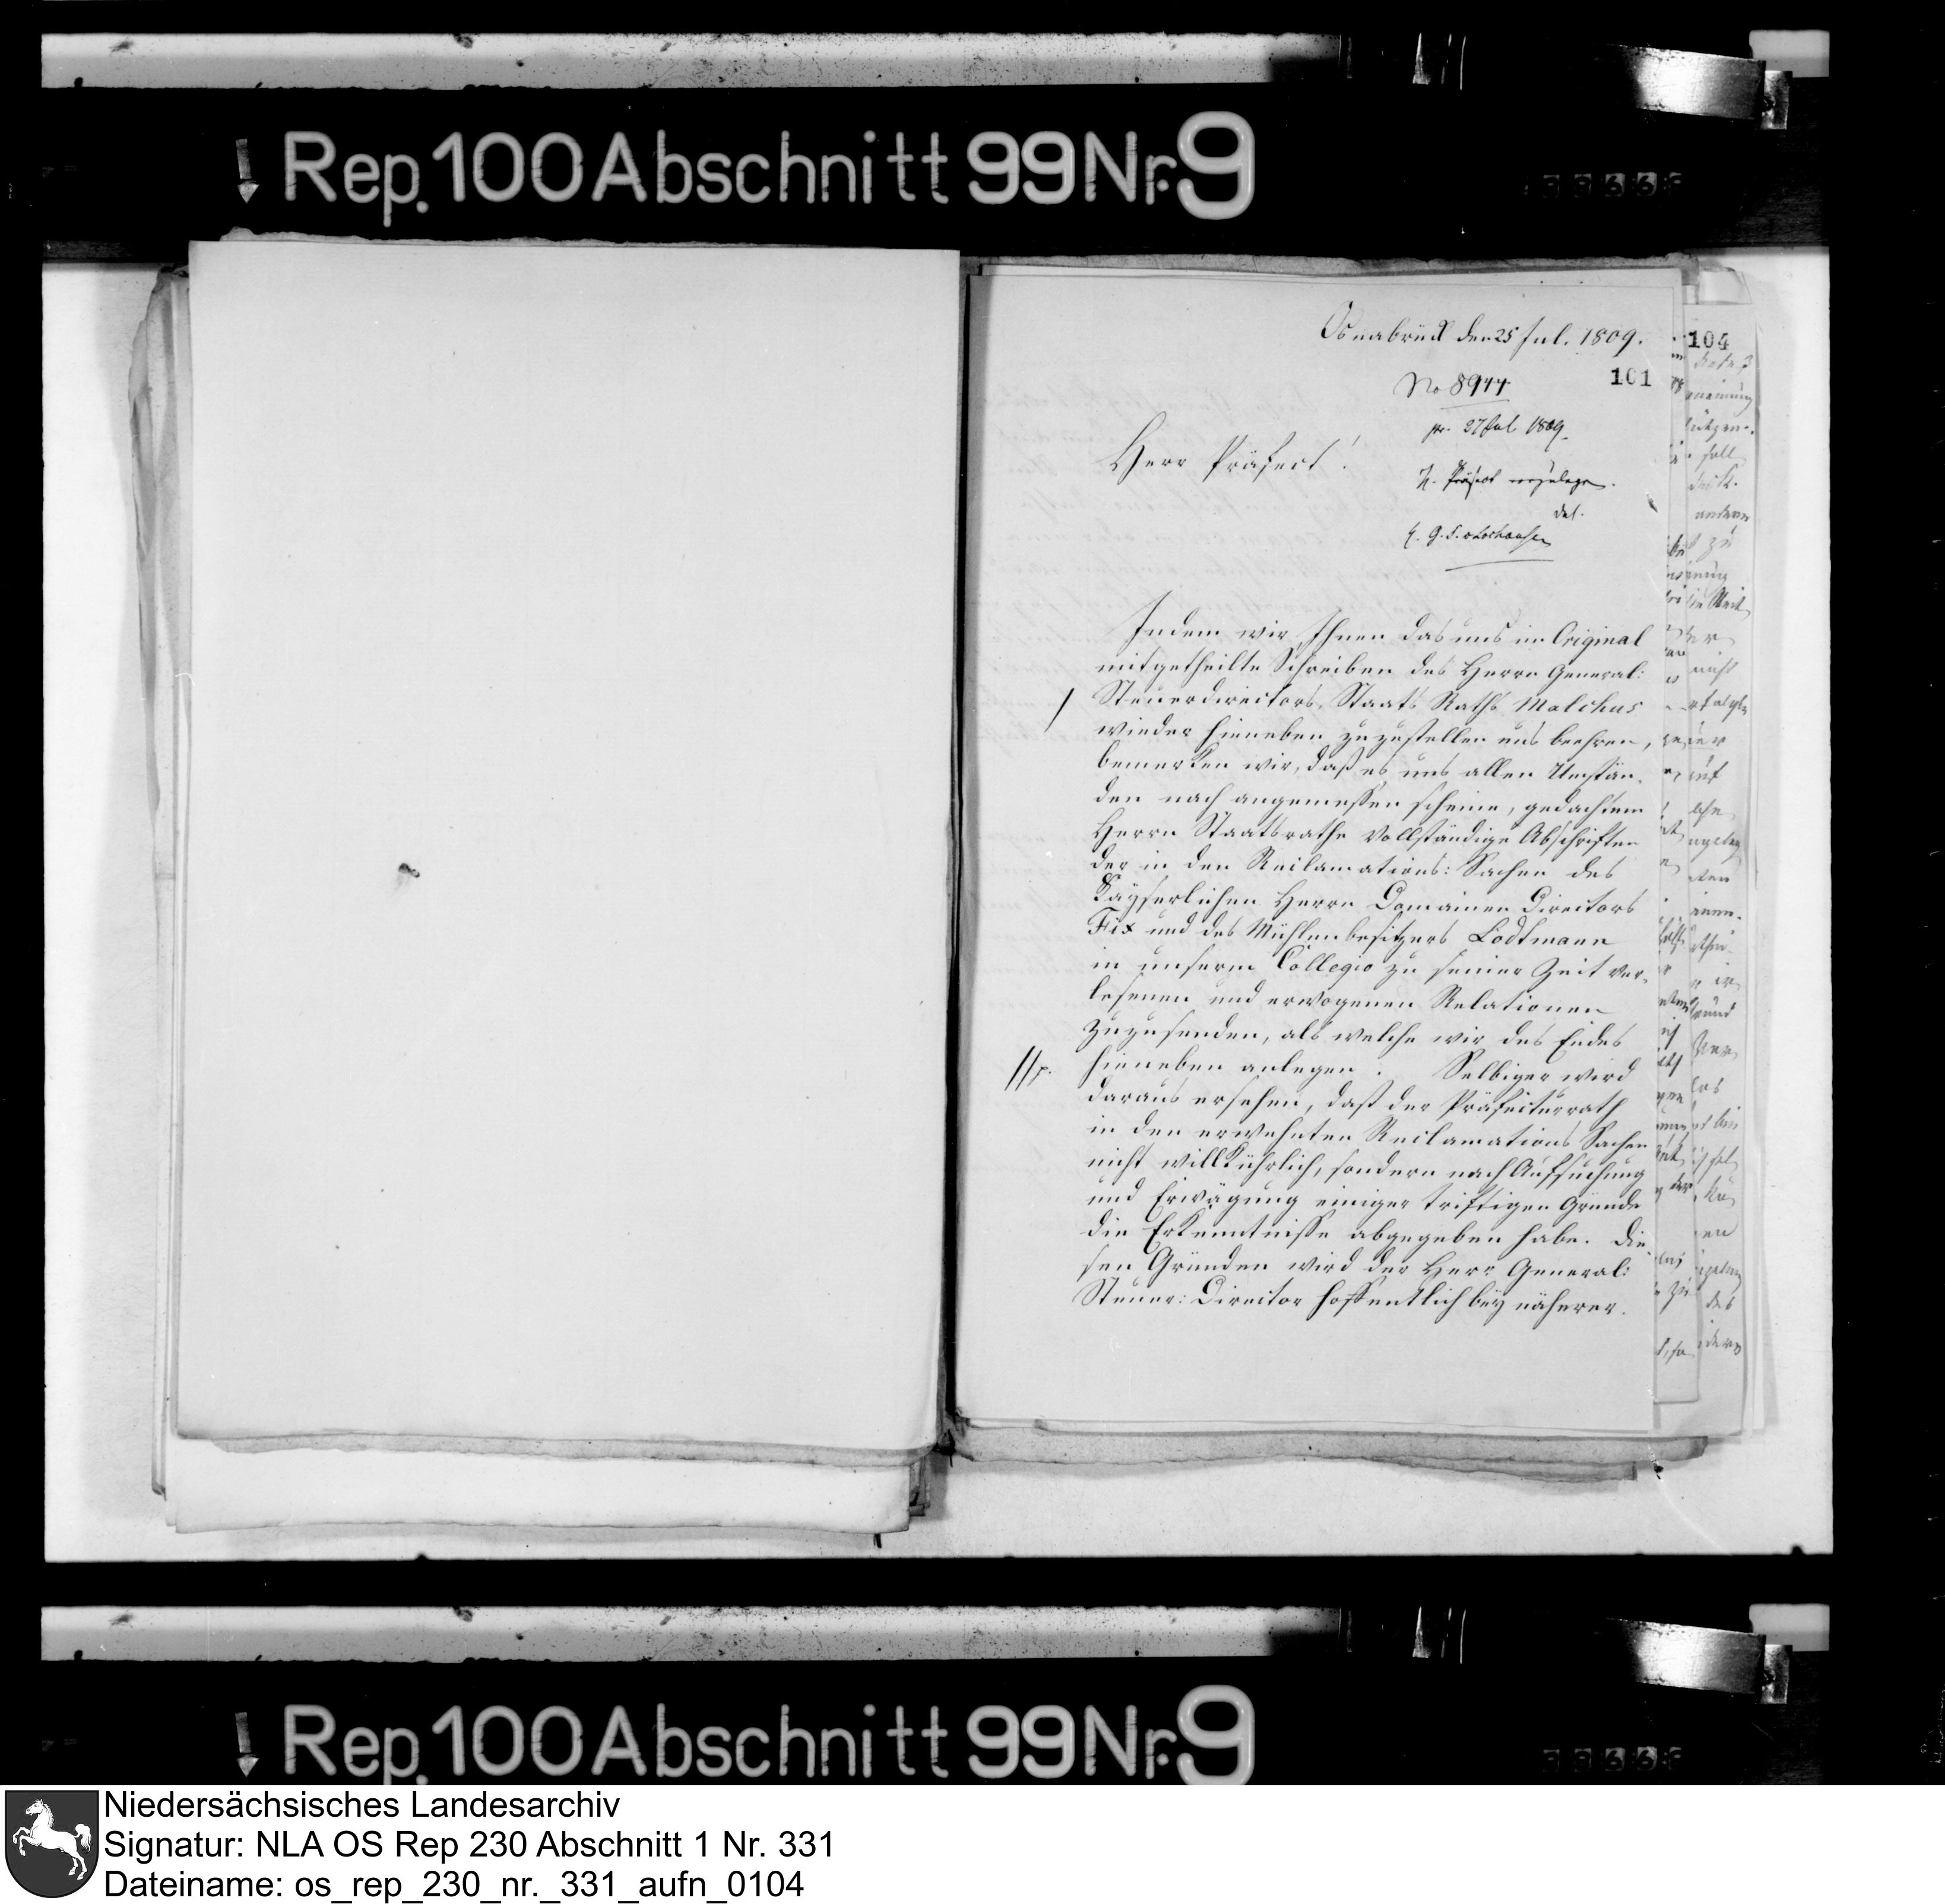 Rep. 100 Abschnitt 99 Nr. 9
Osnabrück den 25 Jul. 1809.
101
104
No 8944
pr. 27 Jul 1809.
Herr Präfect!
H. Präfect vorzulegen.
Indem wir Ihnen das uns im Original
mitgetheilte Schreiben des Herrn General:
Steuerdirectors, Staats Raths Malchus
wieder hieneben zuzustellen uns beehren,
bemerken wir, daß es uns allen Umstän-
den nach angemessen scheine, gedachtem
Herrn Staatsrathe vollständige Abschriften
der in den Reclamations: Sachen des
Kayserlichen Herrn Domainen Directors
Fix und des Mühlenbesitzers Lodtmann
in unserm Collegio zu seiner Zeit ver-
lesenen und erwogenen Relationen
zuzusenden, als welche wir des Endes
hieneben anlegen. Selbiger wird
daraus ersehen, daß der Präfecturrath
in den erwehnten Reclamations Sachen
nicht willkührlich, sondern nach Aufsuchung
und Erwägung einiger triftigen Gründe
die Erkenntnisse abgegeben habe. Die-
sen Gründen wird der Herr General:
Steuer: Director hoffentlich bey näherer
Rep. 100 Abschnitt 99 Nr. 9
Niedersächsisches Landesarchiv
Signatur: NLA OS Rep 230 Abschnitt 1 Nr. 331
Dateiname: os_rep_230_nr._331_aufn_0104